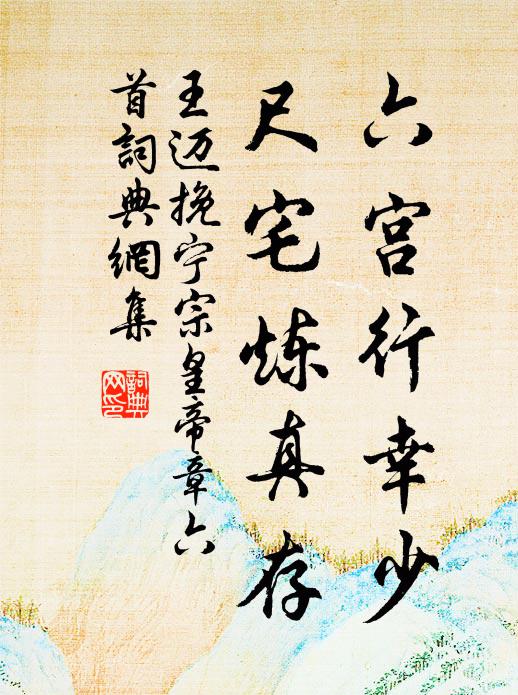 六宫行幸少
尺宅炼真存
王迈挽宁宗皇帝章六
首詞典網集
詞典
网印